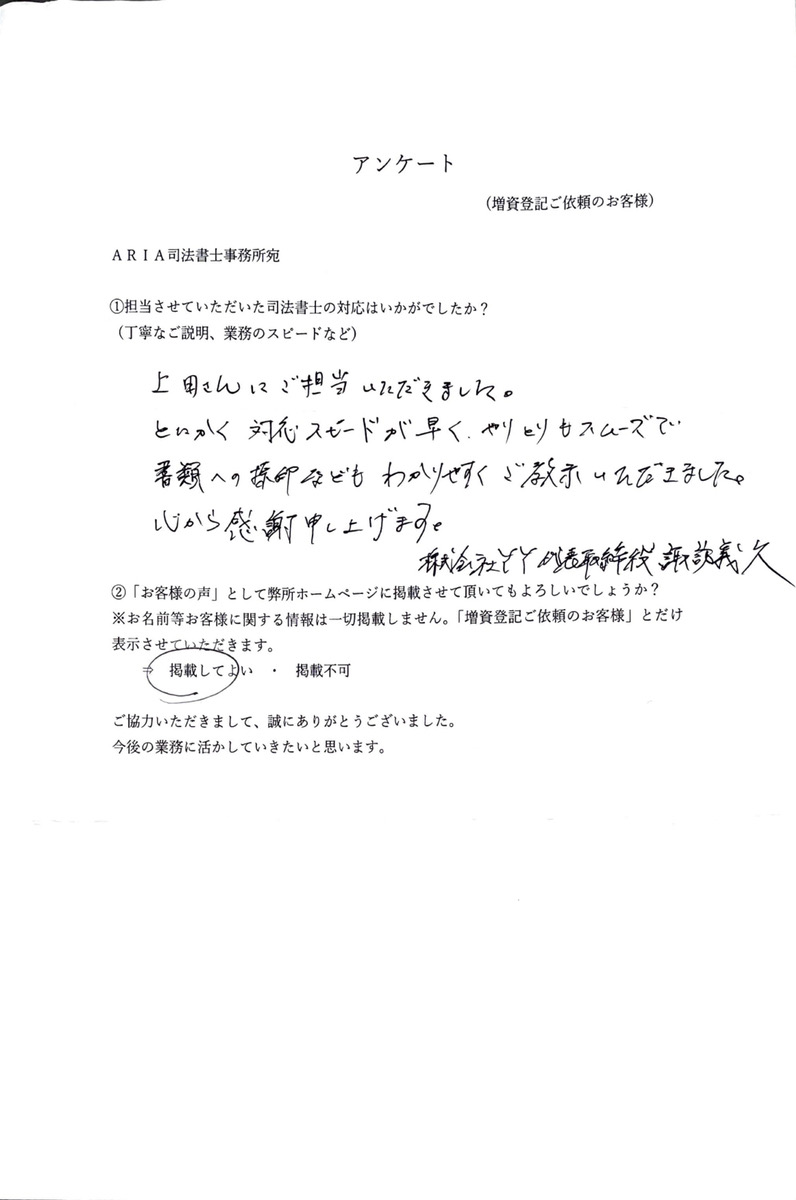 アンケート
（増資登記ご依頼のお客様）
ＡＲＩＡ司法書士事務所宛
①担当させていただいた司法書士の対応はいかがでしたか？
（丁寧なご説明、業務のスピードなど）
上田さんにご担当いただきました。
とにかく対応スピードが早く、やりとりもスムーズで
書類への押印などもわかりやすくご教示いただきました。
心から感謝申し上げます。
株式会社 代表取締役 諏訪義久
②「お客様の声」として弊所ホームページに掲載させて頂いてもよろしいでしょうか？
※お名前等お客様に関する情報は一切掲載しません。「増資登記ご依頼のお客様」とだけ
表示させていただきます。
⇒ 掲載してよい ・ 掲載不可
ご協力いただきまして、誠にありがとうございました。
今後の業務に活かしていきたいと思います。